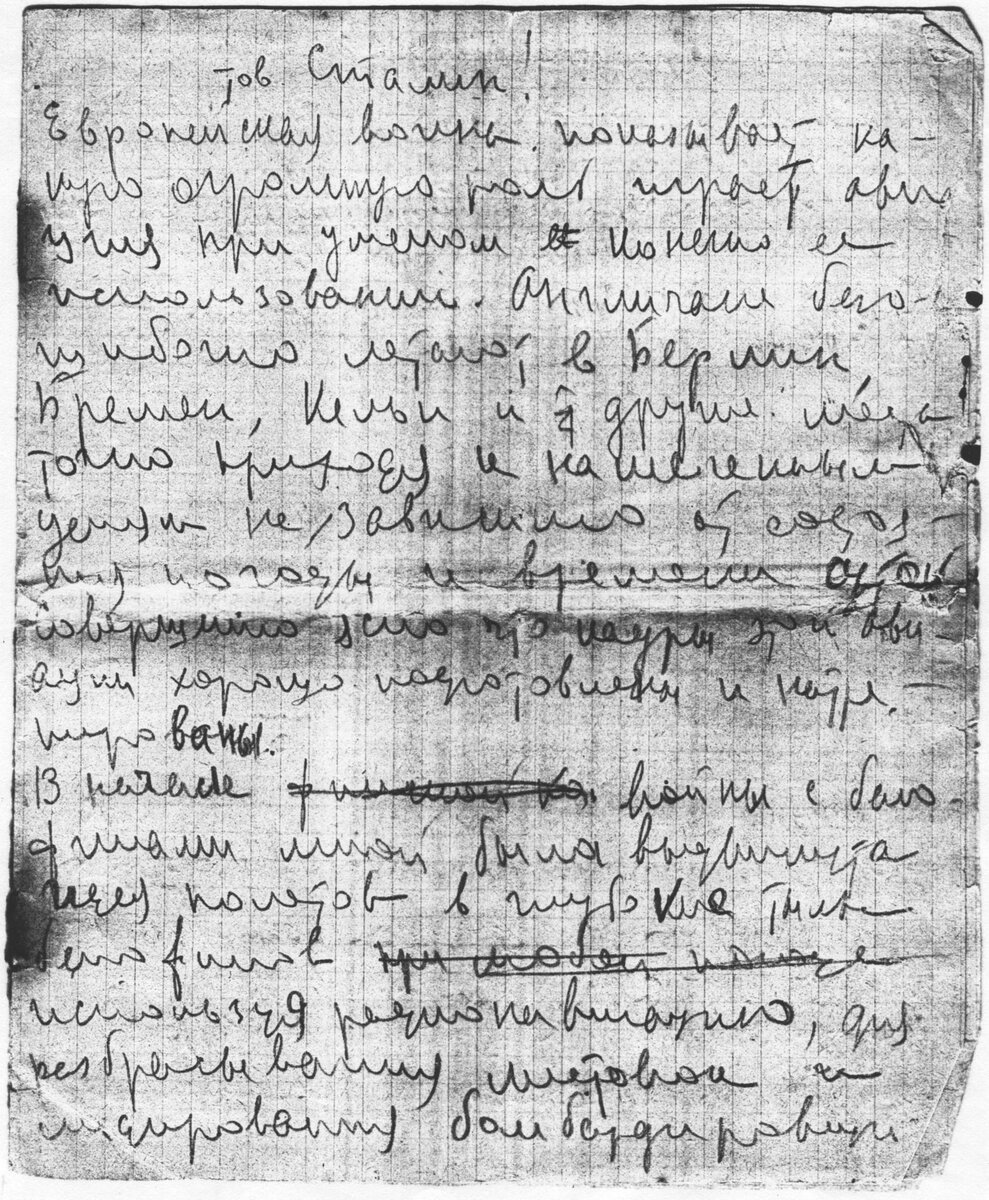 тов Сталин!
Европейская война показывает ка-
кую огромную роль играет ави
ация при умелом конечно ее
использовании. Англичане безо-
шибочно летают в Берлин,
Бремен, Кельн и другие места
точно приходя к намеченным
целям не зависимо от состоя-
ния погоды и времени суток
совершенно ясно что кадры этой ави-
ации хорошо подготовлены и натре-
нированы.
В начале финской во. войны с бело-
финами мной была выдвинута
идея полетов в глубокие тылы
белофинов при любой погоде
используя радионавигацию, для
разбрасывания листовок и
лидирования бомбардировщи